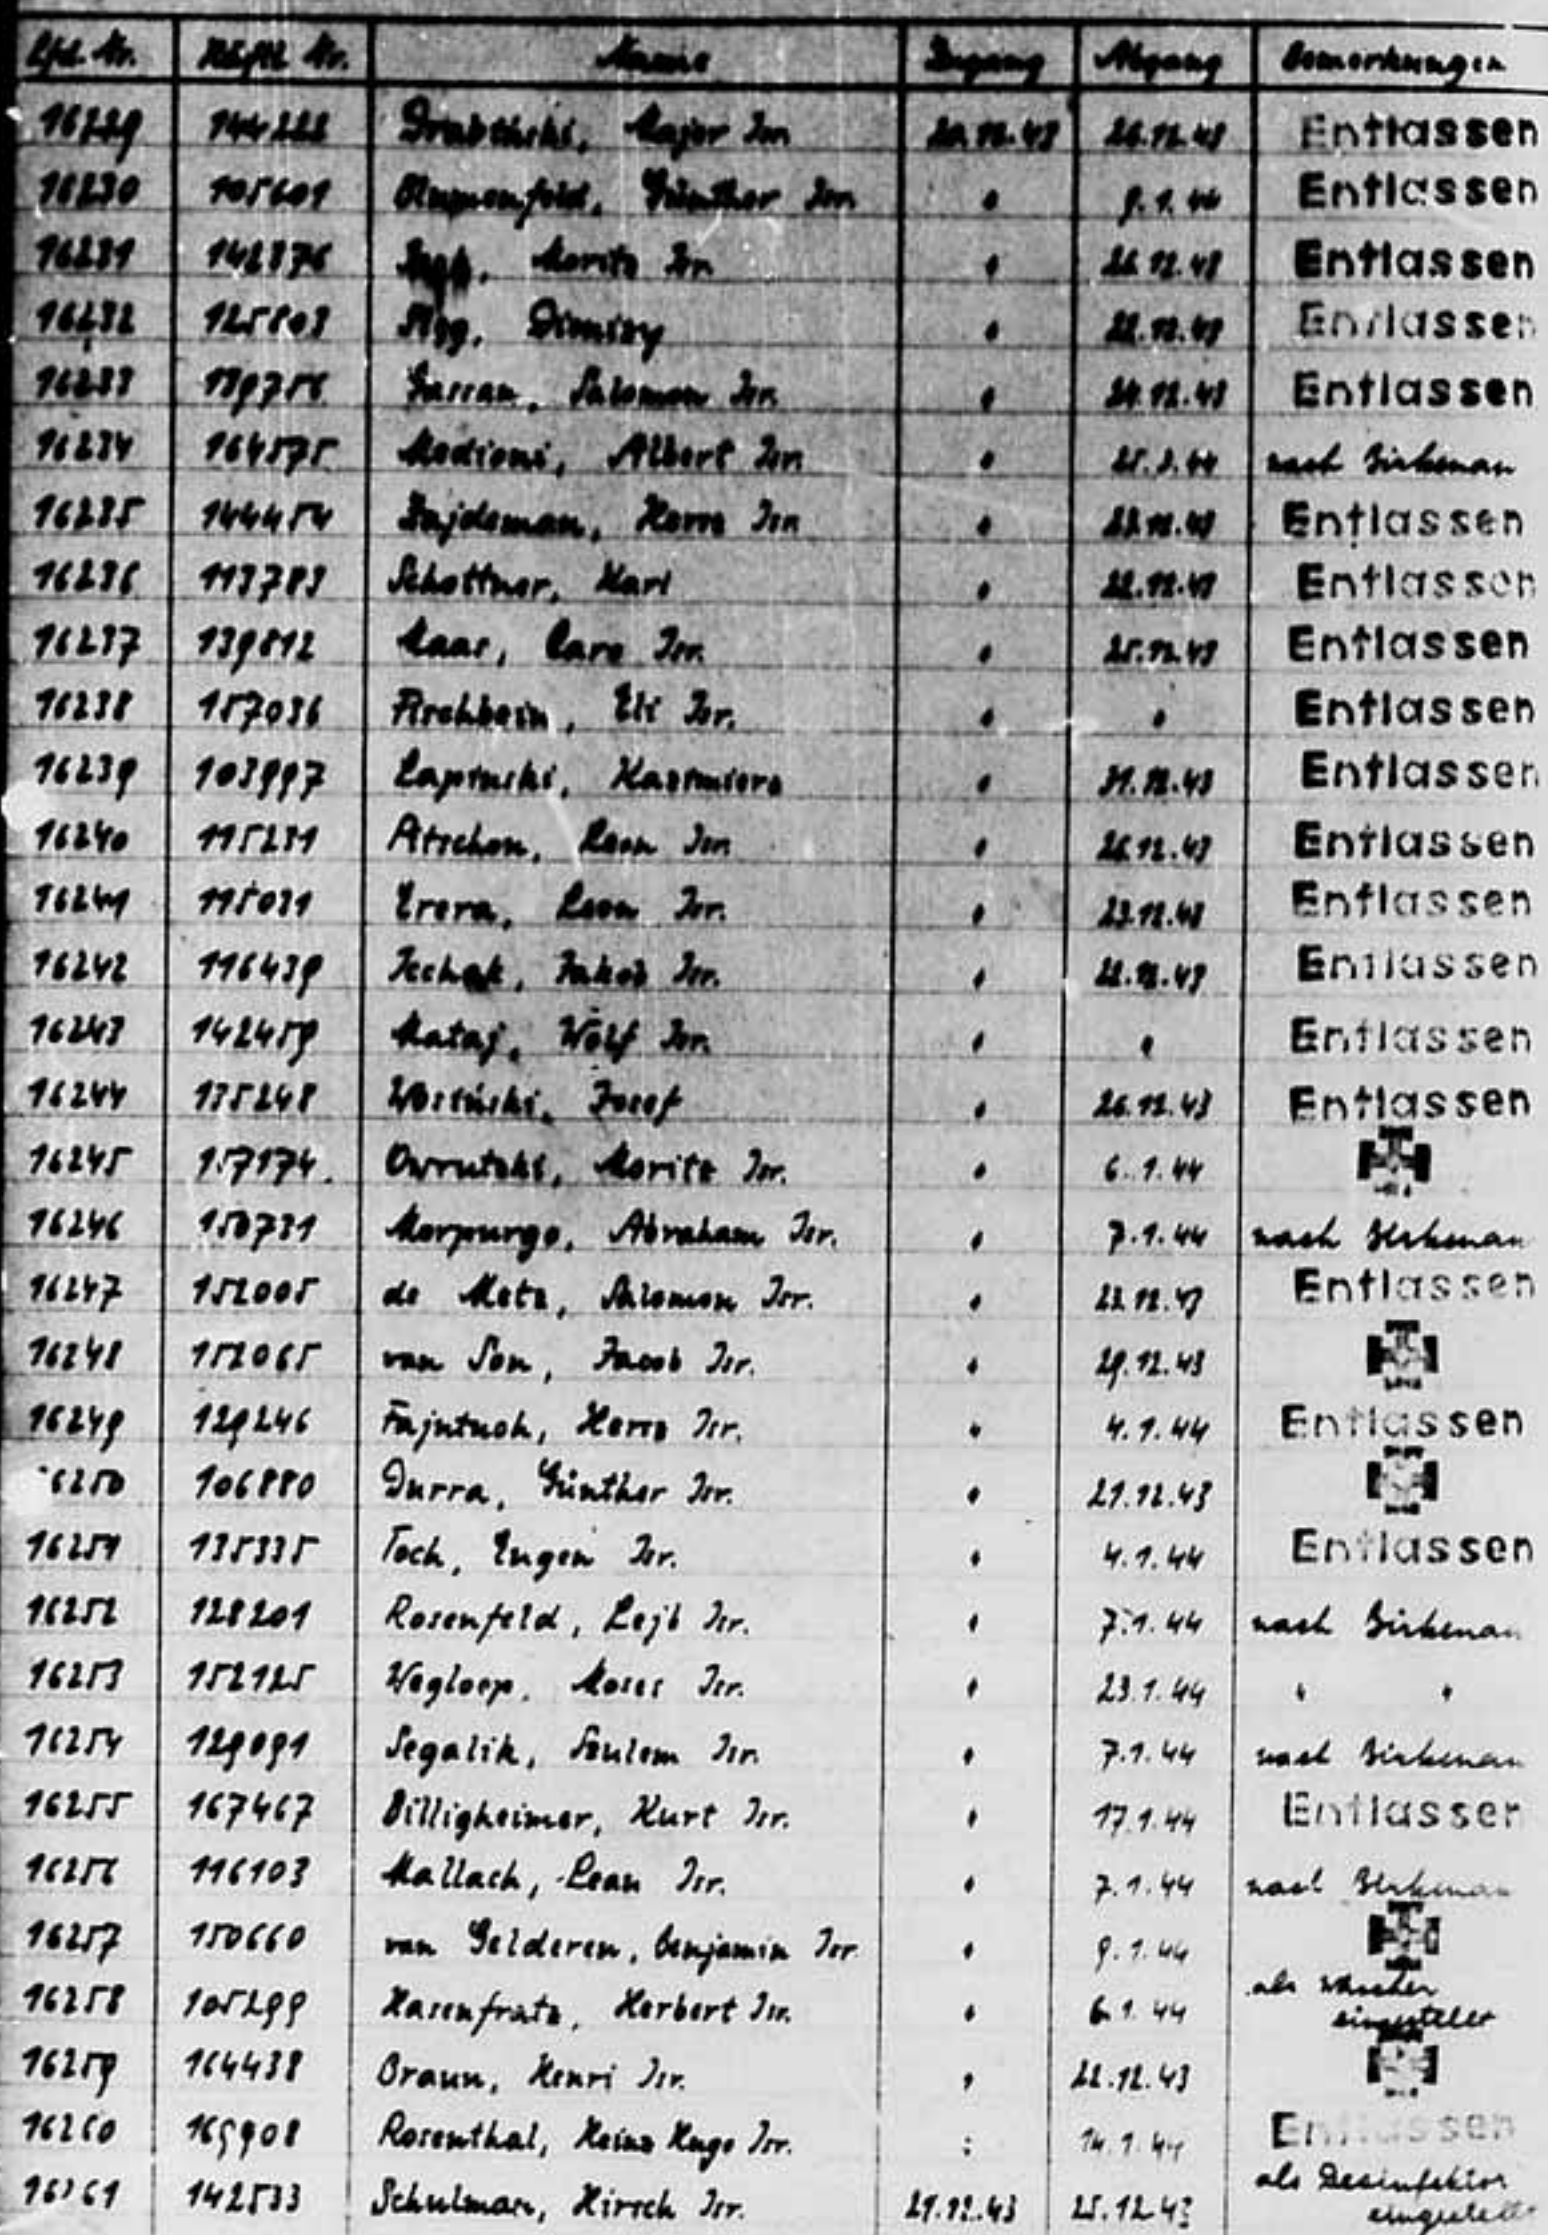 Lfd. Nr. Häftl. Nr. Name Zugang Abgang Bemerkungen
16229 144222 Major Isr. 20.12.43 26.12.43 Entlassen
16230 105601 Günther Isr. " 9.1.44 Entlassen
16231 142376 Moritz Isr. " 22.12.43 Entlassen
16232 125803 " 22.12.43 Entlassen
16233 139756 Salomon Isr. " 24.12.43 Entlassen
16234 164575 Medioni, Albert Isr. " nach Birkenau
16235 144454 Isr. " Entlassen
16236 113783 Schottner, Karl " 22.12.43 Entlassen
16237 139812 Maas, Isr. " 25.12.43 Entlassen
16238 157036 Isr. " " Entlassen
16239 103997 Lapinski, " 31.12.43 Entlassen
16240 115231 Leon Isr. " 26.12.43 Entlassen
16241 115031 Errera, Leon Isr. " 23.12.43 Entlassen
16242 116439 Jakob Isr. " 22.12.43 Entlassen
16243 142459 Mataj, Wolf Isr. " " Entlassen
16244 135248 Josef " 26.12.43 Entlassen
16245 157174. Owrutzki, Moritz Isr. " 6.1.44
16246 150731 Morpurgo, Abraham Isr. " 7.1.44 nach Birkenau
16247 152005 de Metz, Salomon Isr. " 22.12.43 Entlassen
16248 152065 van Son, Jacob Isr. " 29.12.43
16249 129246 Fajntuch, Isr. " 4.1.44 Entlassen
16250 106880 Durra, Günther Isr. " 21.12.43
16251 135335 Toch, Eugen Isr. " 4.1.44 Entlassen
16252 128201 Rosenfeld, Lejb Isr. " 7.1.44 nach Birkenau
16253 152125 Wegloop, Moses Isr. " 23.1.44 " "
16254 129091 Segalik, Szulem Isr. " 7.1.44 nach Birkenau
16255 167467 Billigheimer, Kurt Isr. " 17.1.44 Entlassen
16256 116103 Mallach, Isr. " 7.1.44 nach Birkenau
16257 150660 van Gelderen, Benjamin Isr. " 9.1.44
16258 105299 Hasenfratz, Herbert Isr. " 6.1.44 als
eingestellt
16259 164438 Braun, Henri Isr. " 22.12.43
16260 165908 Rosenthal, Heinz Hugo Isr. : 14.1.44 Entlassen
16261 142533 Schulman, Hirsch Isr. 21.12.43 25.12.43 als Desinfektor
eingestellt